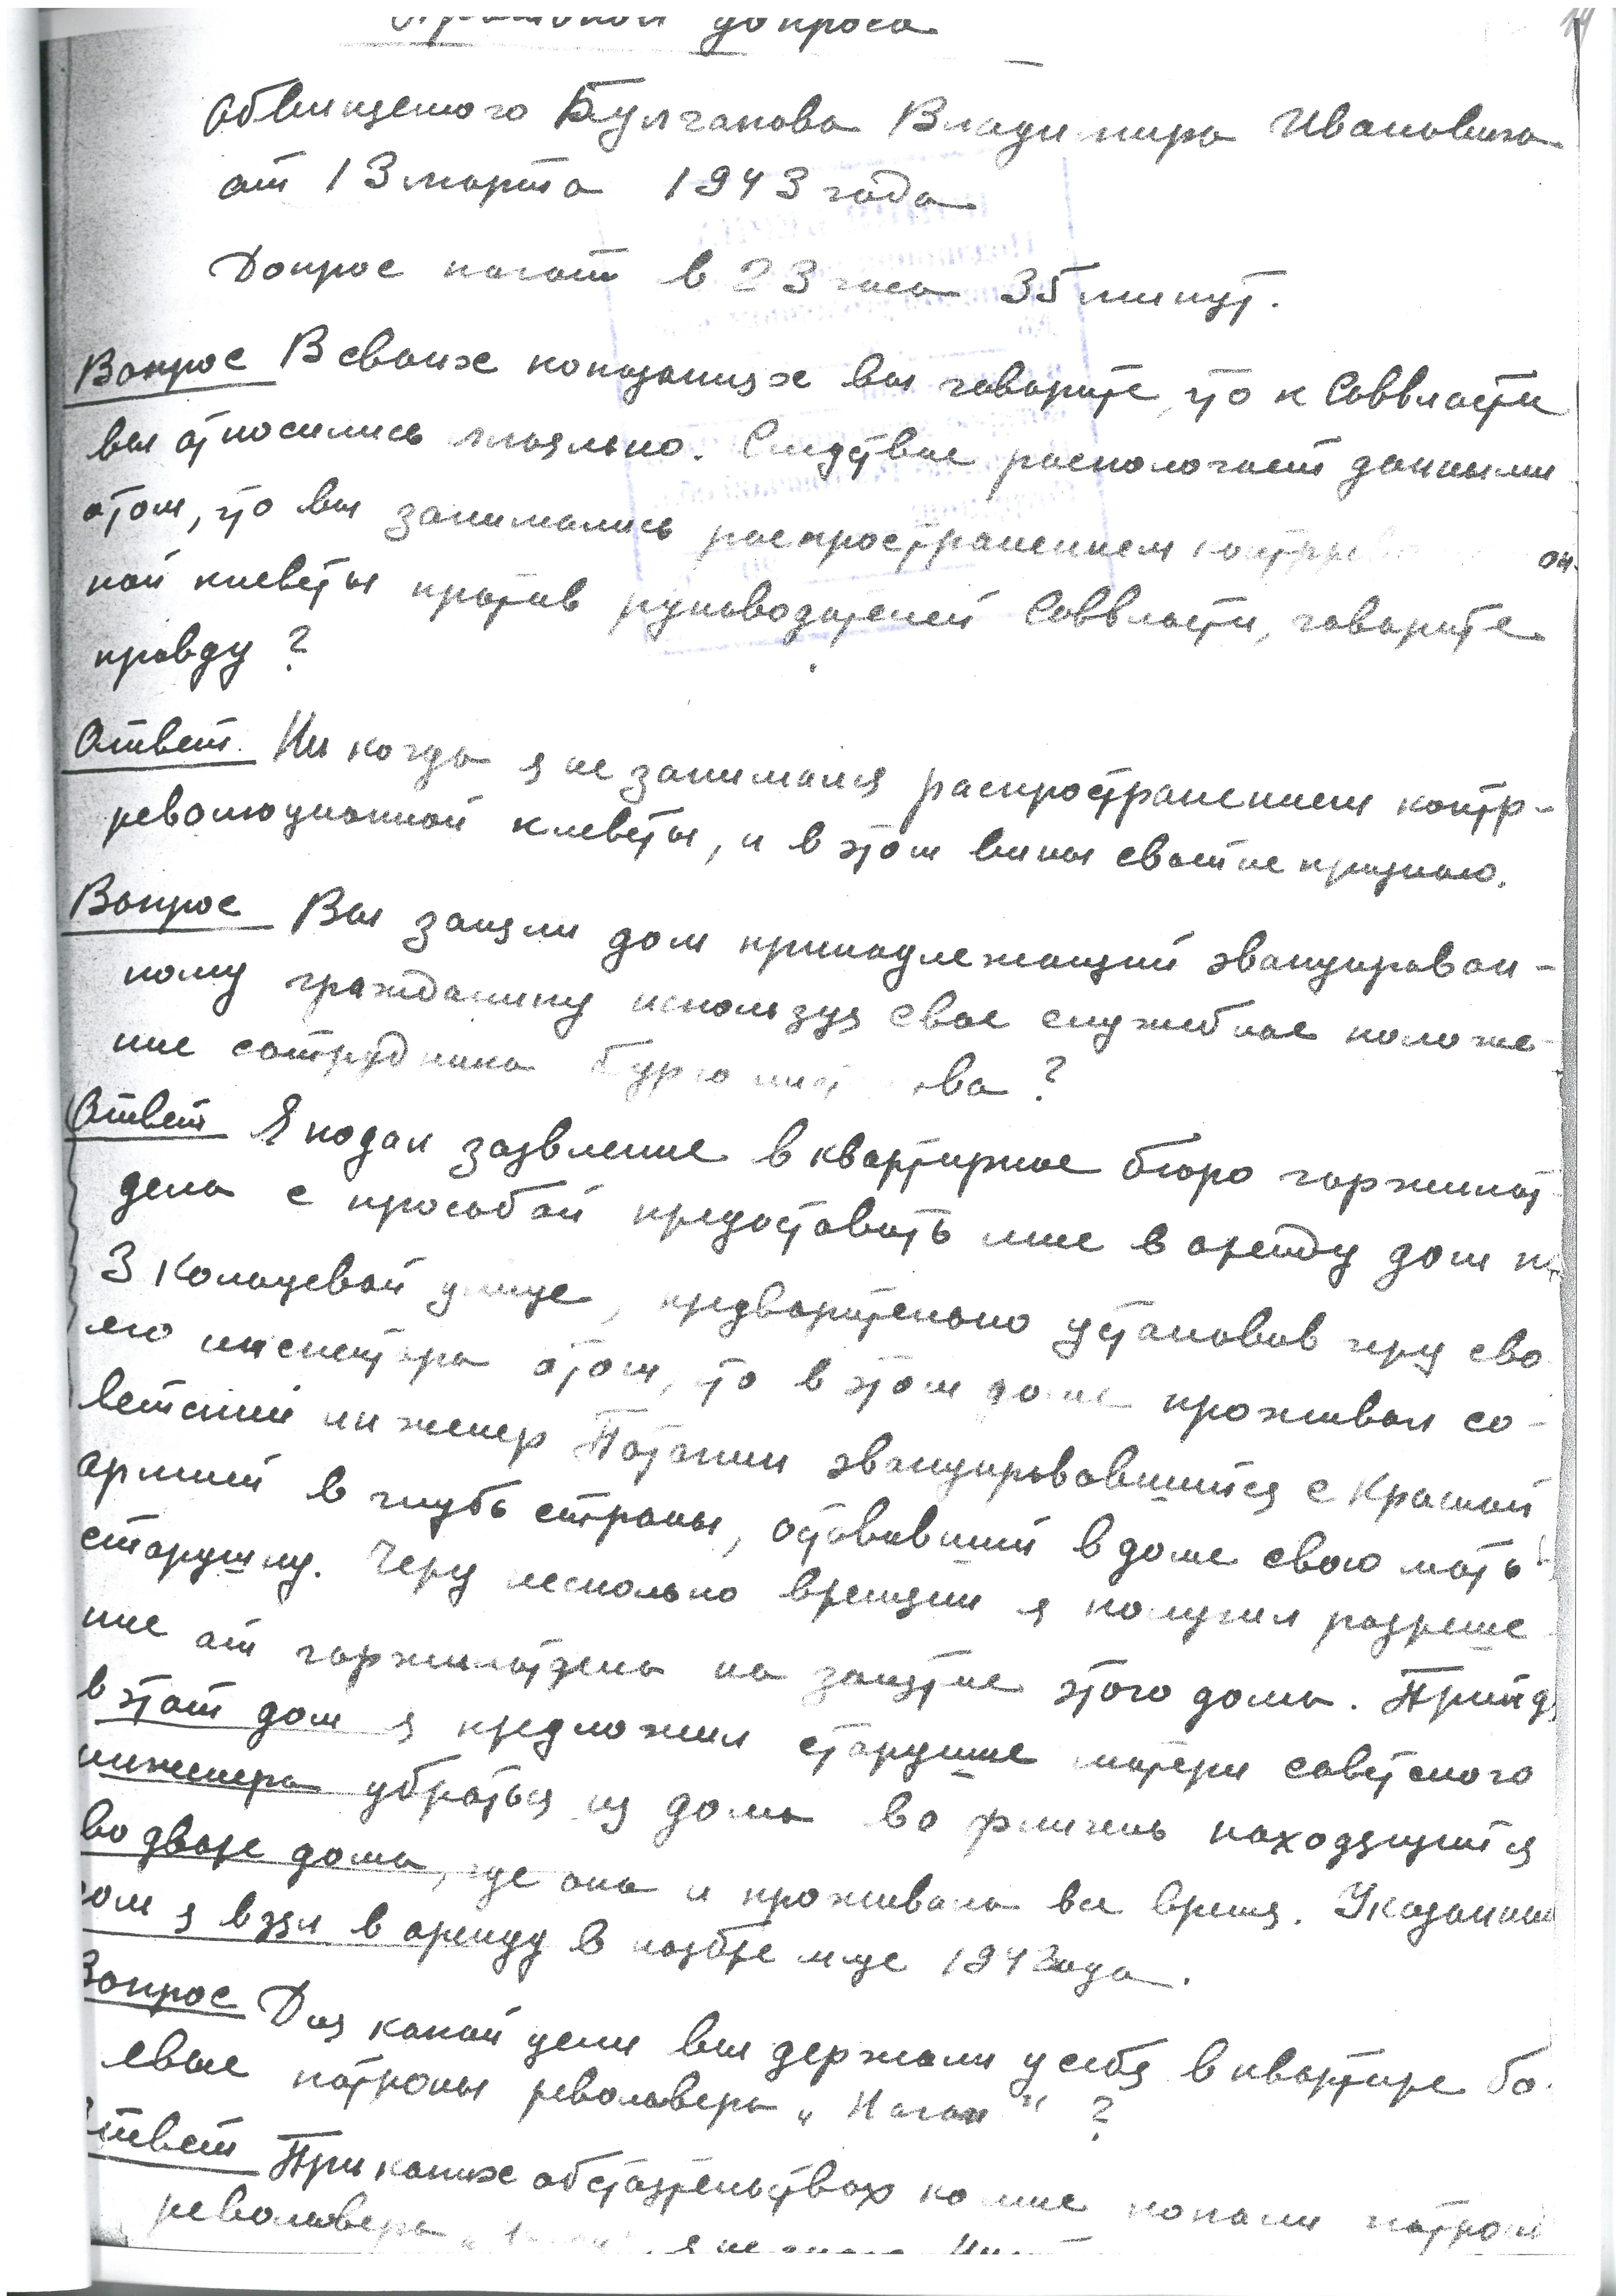 14
Протокол допроса
Обвиняемого Булгакова Владимира Ивановича
от 13 марта 1943 года
Допрос начат в 23 часа 35 минут.
Вопрос В своих показаниях вы говорите, что к Соввласти
вы относились лояльно. Следствие распологает данными
отом, что вы занимались распространением контррев он-
ной клеветы против руководителей Соввласти, говорите
правду?
Ответ. Ни когда я не занимался распространением контр-
революционной клеветы, и в этом вины своей не признаю.
Вопрос Вы заняли дом принадлежащий эвакуирован-
ному гражданину используя свое служебное положе-
ние сотрудника бургомист ва?
Ответ Я подал заявление в квартирное бюро горжилот-
дела с прособой предоставить мне в аренду дом №
3 Кольцевой улице, предварительно установив черу сво
его инспектора отом, что в этом доме проживал со-
ветский инженер Потагин эвакуировавшийся с Красной
армией в глубь страны, оставивший в доме свою мать
старушку. Черу несколько времени я получил разреше-
ние от горжилотдела на занятие этого дома. Прийдя
в этот дом я предложил старушке матери советского
инженера убраться из дома во флигель находящийся
во дворе дома, где она и проживала все время. Указанный
дом я взял в аренду в ноябре м-це 1942 года.
Вопрос Для какой цели вы держали у себя в квартире бо-
евые патроны револьвера „Наган"?
Ответ При каких обстоятельствах ко мне попали патроны
револьвера я не